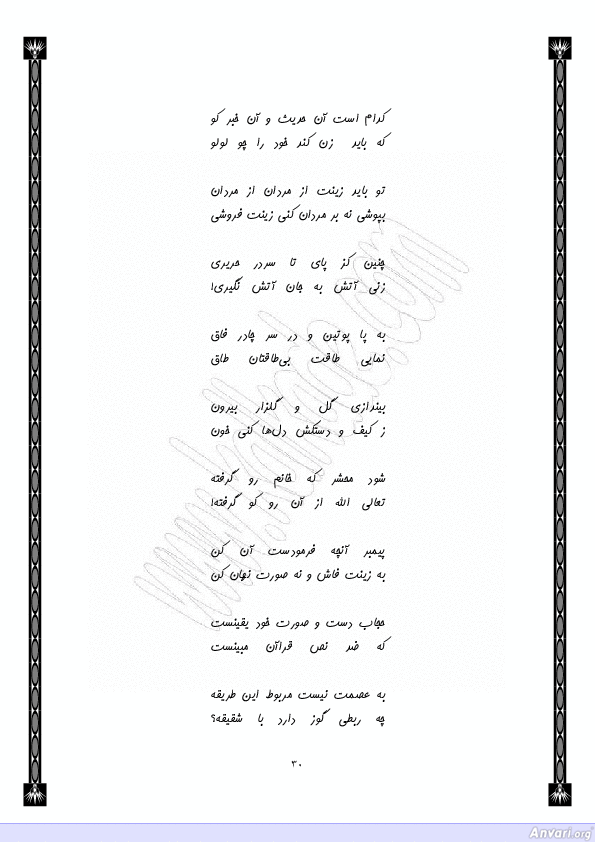 کدام است آن حدیث و آن خبر کو
که باید زن کند خود را چو لولو
تو باید زینت از مردان از مردان
بپوشی نه بر مردان کنی زینت فروشی
چنین کز پای تا سردر حریری
زنی آتش به جان آتش نگیری!
به پا پوتین و در سر چادر فاق
نمایی طاقت بی‌طاقتان طاق
بیندازی گل و گلزار بیرون
ز کیف و دستکش دل‌ها کنی خون
شود محشر که خانم رو گرفته
تعالی الله از آن رو کو گرفته!
پیمبر آنچه فرمودست آن کن
به زینت فاش و نه صورت نهان کن
حجاب دست و صورت خود یقینست
که ضد نص قراآن مبینست
به عصمت نیست مربوط این طریقه
چه ربطی گوز دارد با شقیقه؟
۳۰
www.KetabFarsi.com
Anvari.org